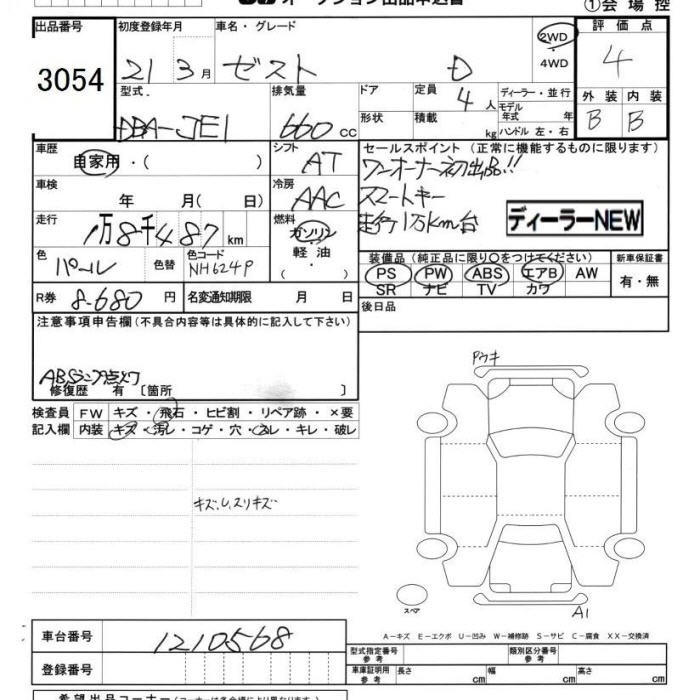 オークション出品申込書 ①会場控
出品番号 初度登録年月 車名・グレード 2WD 評価点
3054 21 3月 ゼスト D ・ 4WD 4
型式. 排気量 ドア 定員 4人 ディーラー・並行 外装 内装
DBA-JE1 660cc 形状 積載 kg モデル年式 年 ハンドル 左・右 B B
車歴 自家用・( ) シフト AT セールスポイント(正常に機能するものに限ります)
ワンオーナー初出品!!
車検 年 月(日) 冷房 AAC スマートキー
走行 1万8千487km 燃料 ガソリン 軽油 ・ 走行1万km台 ディーラーNEW
色 パール 色替 色コード NH624P 装備品(純正品に限り○をつけてください) 新車保証書
PS PW ABS エアB AW 有・無
SR ナビ TV カワ
R券 8-680円 名変通知期限 月 日 後日品
注意事項申告欄(不具合内容等は具体的に記入して下さい)
ABSランプ点灯
修復歴 有 〔箇所 〕
Pウキ
検査員 FW キズ・飛石・ヒビ割・リペア跡・×要
記入欄 内装 キズ・汚レ・コゲ・穴・スレ・キレ・破レ
キズ、U、スリキズ
スペア
A1
A-キズ E-エクボ U-凹み W-補修跡 S-サビ C-腐食 XX-交換済
車台番号 1210568 型式指定番号 参考 類別区分番号 参考
登録番号 車庫証明用 参考 長さ cm 幅 cm 高さ cm
希望出品コーナー(コーナーは会場により異なります)